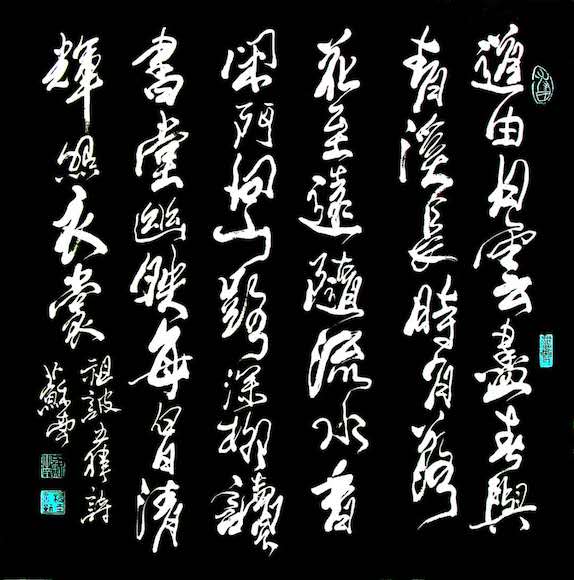 道由白雲盡春與
青溪長時有落
花至遠隨流水香
閑門向山路深柳讀
書堂幽映每白日清
輝照衣裳
祖詠五律詩
蘇